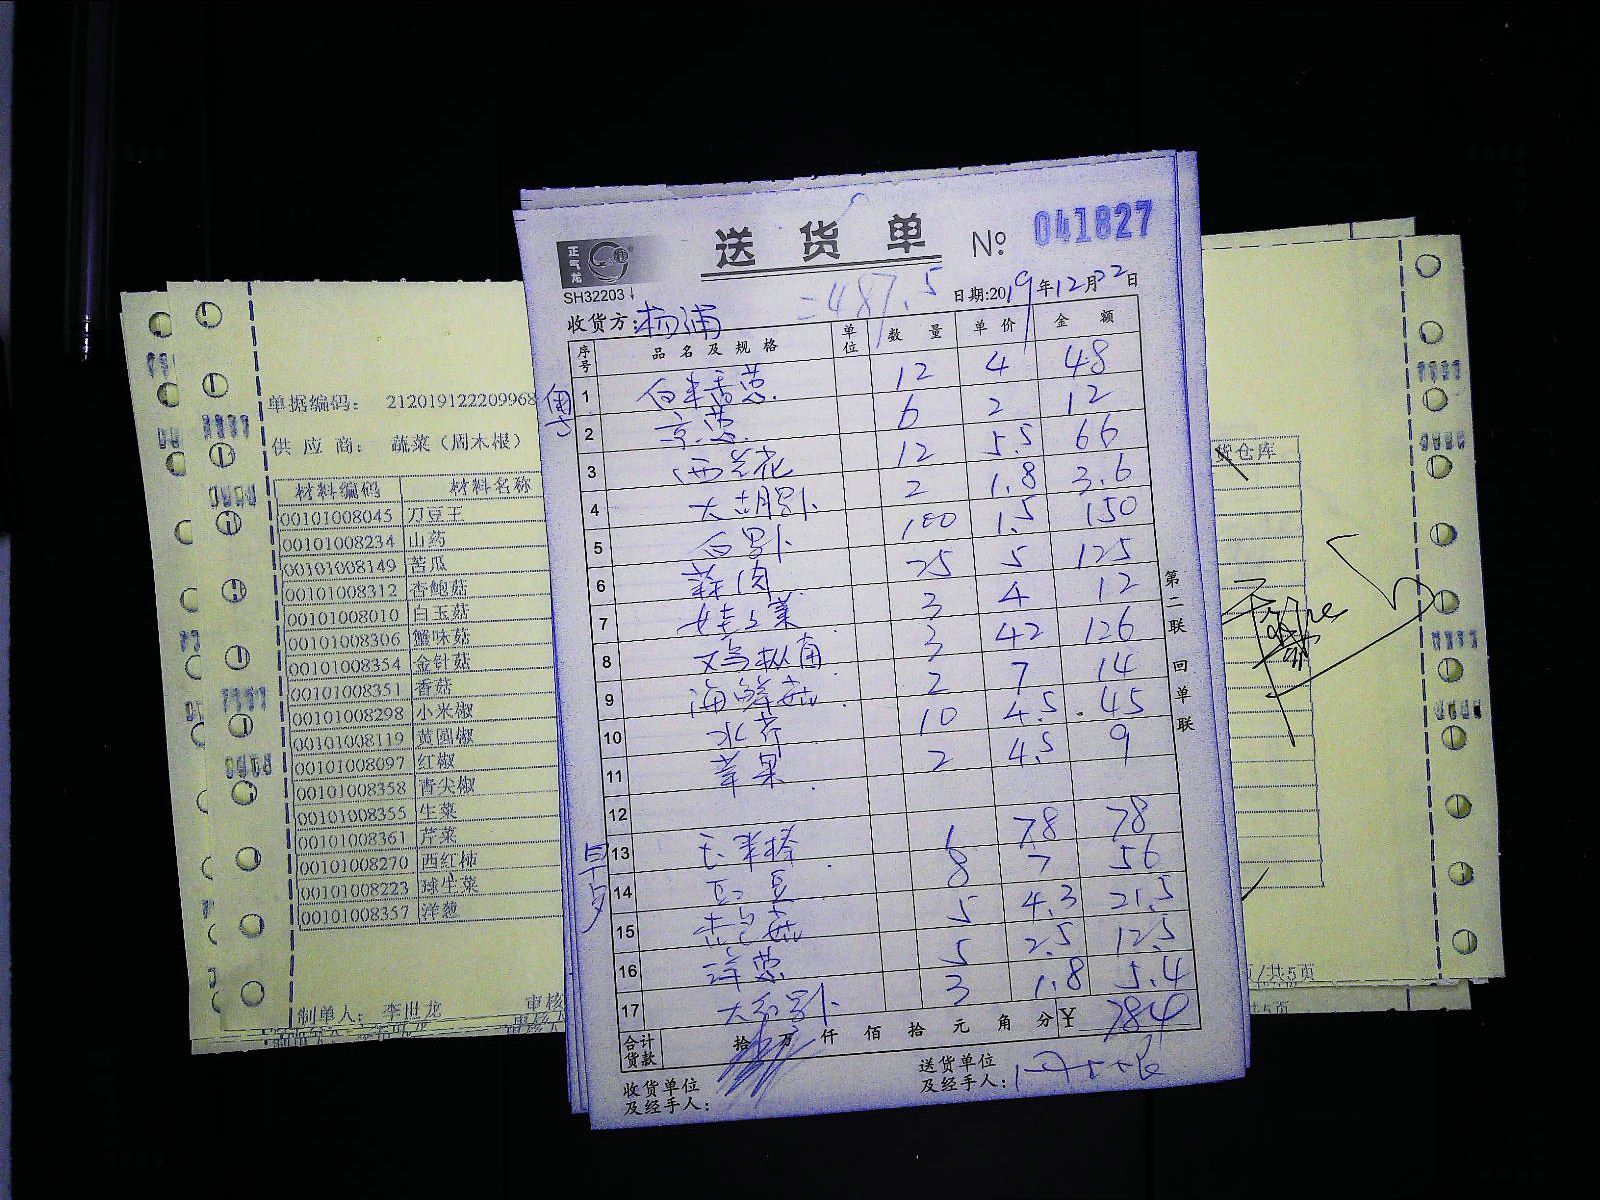 送货单 № 041827
正气龙
SH32203
=487.5
日期:2019年12月22日
收货方:杨浦
序号 品名及规格 单位 数量 单价 金额
1 白米香葱 12 4 48
2 京葱 6 2 12
3 西兰花 12 5.5 66
4 大胡罗卜 2 1.8 3.6
5 白罗卜 100 1.5 150
6 蒜肉 25 5 125
7 娃娃菜 3 4 12
8 鸡枞菌 3 42 126
9 海鲜菇 2 7 14
10 水芹 10 4.5 45
11 苹果 2 4.5 9
12
13 玉米棒 1 78 78
14 豇豆 8 7 56
15 秀珍菇 5 4.3 21.5
16 洋葱 5 2.5 12.5
17 大红罗卜 3 1.8 5.4
合计货款 拾 万 仟 佰 拾 元 角 分 ¥ 784
收货单位及经手人:
送货单位及经手人:
第二联 回单联
单据编码: 212019122209968
供应商: 蔬菜(周木根)
材料编码 材料名称
00101008045 刀豆王
00101008234 山药
00101008149 苦瓜
00101008312 杏鲍菇
00101008010 白玉菇
00101008306 蟹味菇
00101008354 金针菇
00101008351 香菇
00101008298 小米椒
00101008119 黄圆椒
00101008097 红椒
00101008358 青尖椒
00101008355 生菜
00101008361 芹菜
00101008270 西红柿
00101008223 球生菜
00101008357 洋葱
制单人: 李世龙
审核
货仓库
页/共5页